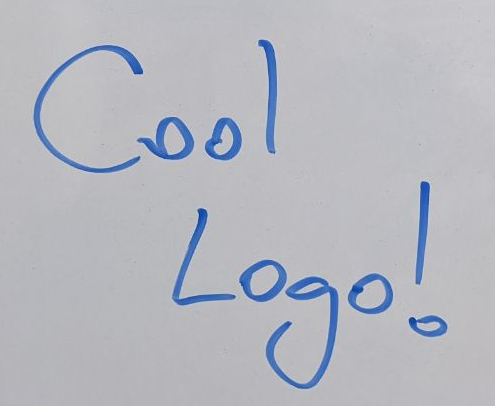 Cool
Logo!